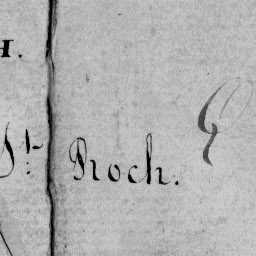 H.
St. Roch.